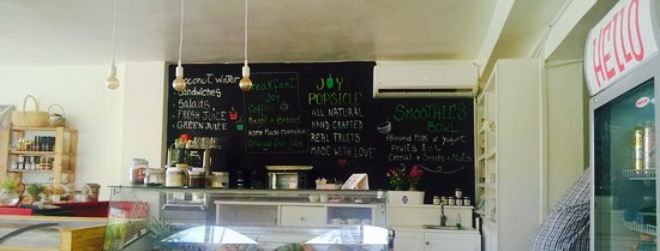 Coconut Water
Sandwiches
Salads
FRESH JUICE
GREEN JUICE
Breakfast
Joy
Coffee
Bagel + Bread
Home Made
JOY
POPSICLE
ALL NATURAL
HAND CRAFTED
REAL FRUITS
MADE WITH LOVE
SMOOTHIE'S
BOWL
Almond Milk or yogurt
Fruits
Cereal + Seeds + Nuts
HELLO